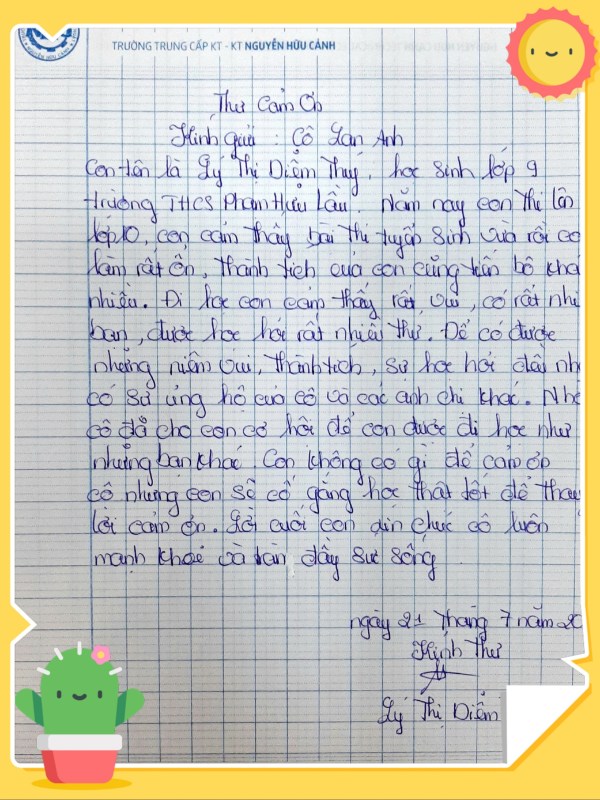 TRƯỜNG TRUNG CẤP KT - KT NGUYỄN HỮU CẢNH
Thư Cảm Ơn
Kính gửi : Cô Lan Anh
Con tên là Lý Thị Diễm Thuý, học sinh lớp 9
trường THCS Phạm Hữu Lầu. Năm nay con thi lên
lớp 10, con cảm thấy bài thi tuyển sinh vừa rồi co
làm rất ổn, thành tích của con cũng tiến bộ khá
nhiều. Đi học con cảm thấy rất vui, có rất nhi
bạn, được học hỏi rất nhiều thứ. Để có được
những niềm vui, thành tích, sự học hỏi đấy nh
có sự ủng hộ của cô và các anh chị khác. Nhờ
cô đã cho con cơ hội để con được đi học như
những bạn khác. Con không có gì để cảm ơn
cô nhưng con sẽ cố gắng học thật tốt để thay
lời cảm ơn. Lời cuối con xin chúc cô luôn
mạnh khoẻ và tràn đầy sức sống
ngày 21 tháng 7 năm 20
Kính Thư
Lý Thị Diễm